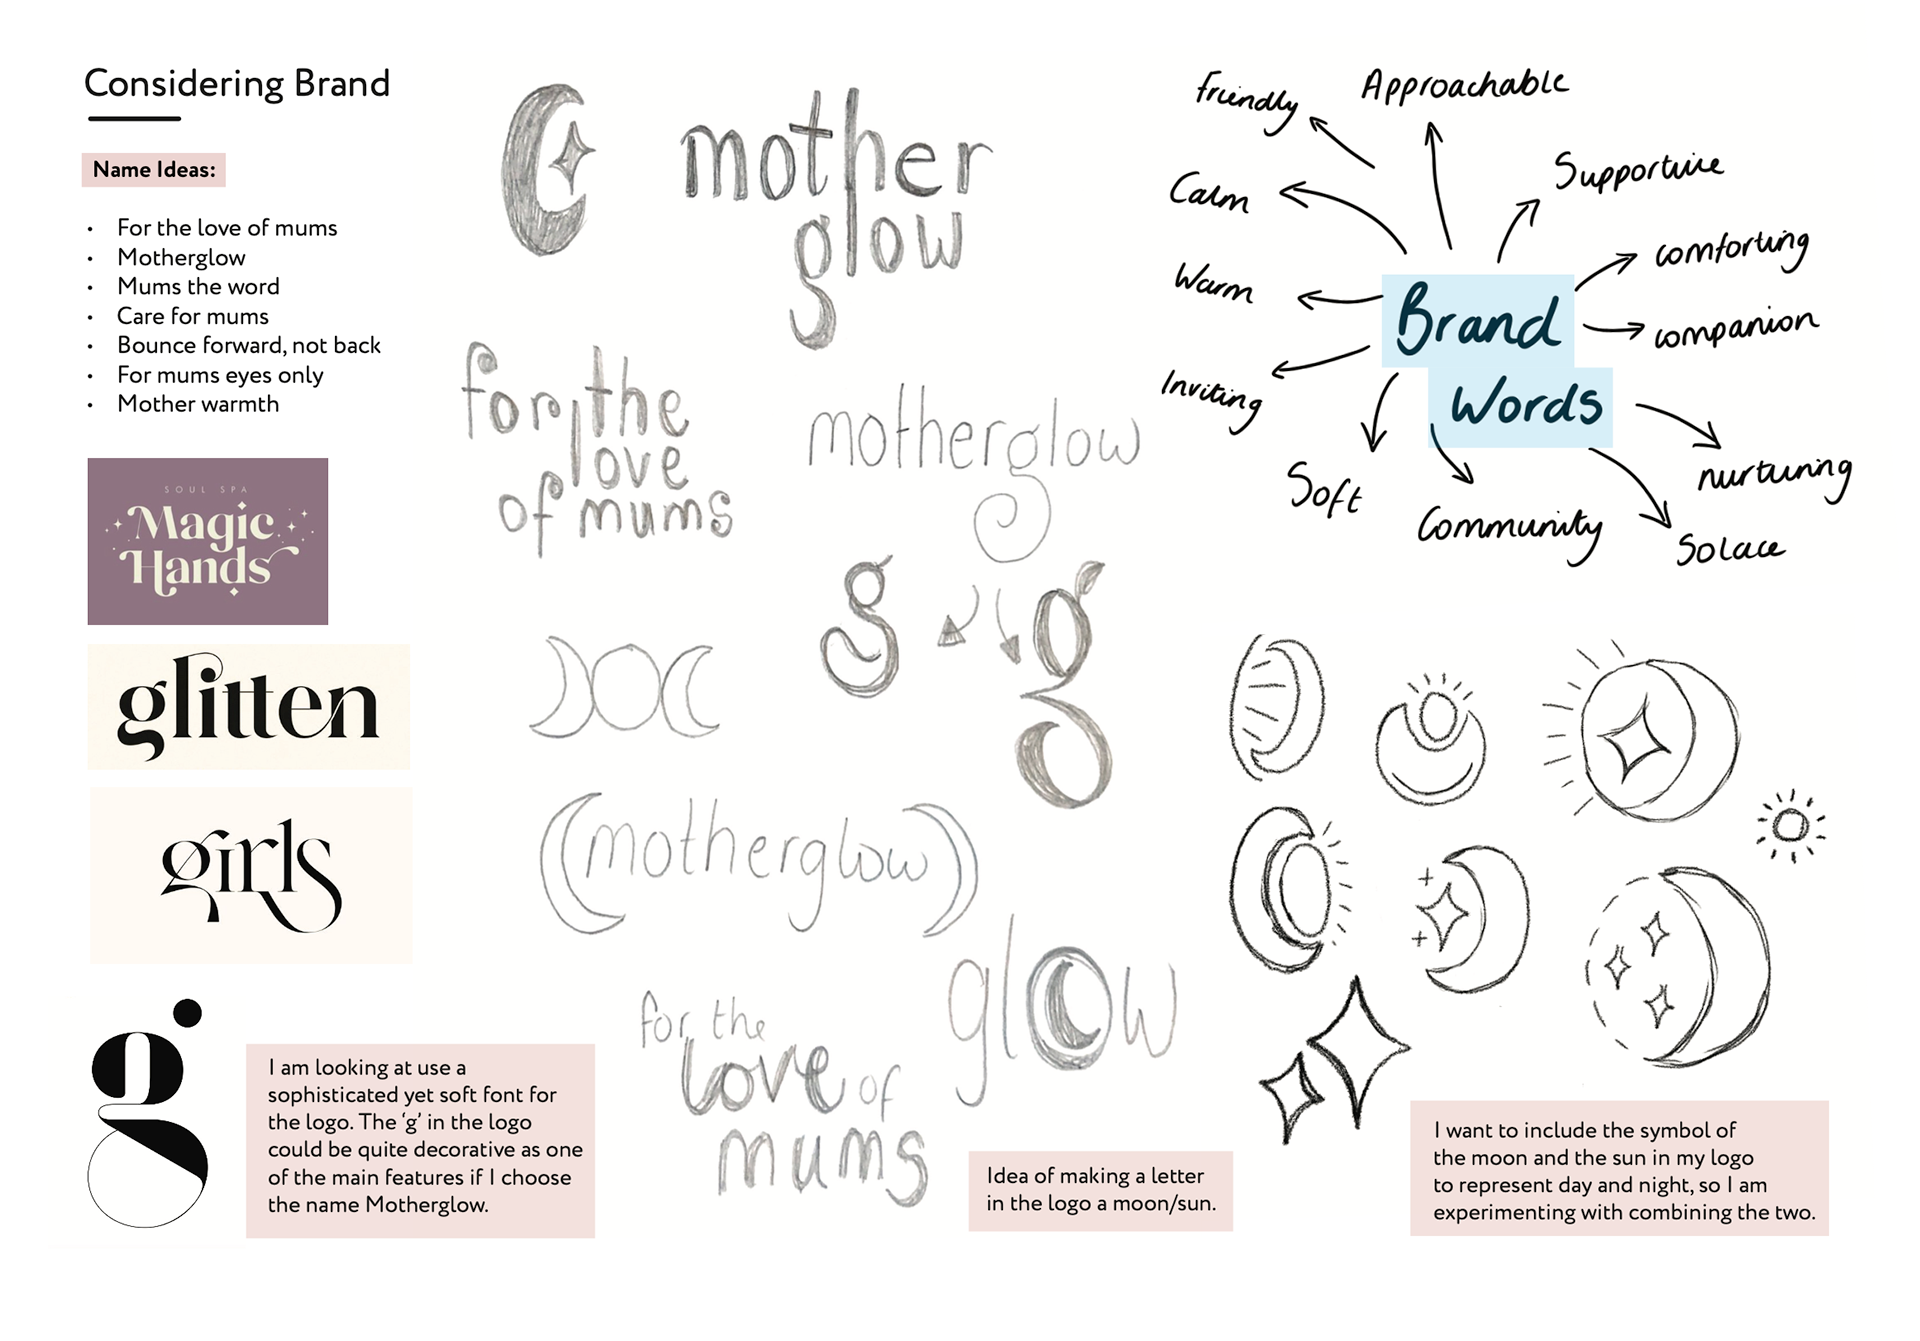 Considering Brand
Name Ideas:
• For the love of mums
• Motherglow
• Mums the word
• Care for mums
• Bounce forward, not back
• For mums eyes only
• Mother warmth
SOUL SPA
Magic
Hands
glitten
girls
g
I am looking at use a
sophisticated yet soft font for
the logo. The ‘g’ in the logo
could be quite decorative as one
of the main features if I choose
the name Motherglow.
mother
glow
for the
love
of mums
motherglow
g
g
motherglow
glow
for the
love of
mums
Idea of making a letter
in the logo a moon/sun.
Friendly
Approachable
Supportive
Calm
comforting
Warm
companion
Brand
Words
Inviting
Soft
Community
Solace
nurturing
I want to include the symbol of
the moon and the sun in my logo
to represent day and night, so I am
experimenting with combining the two.